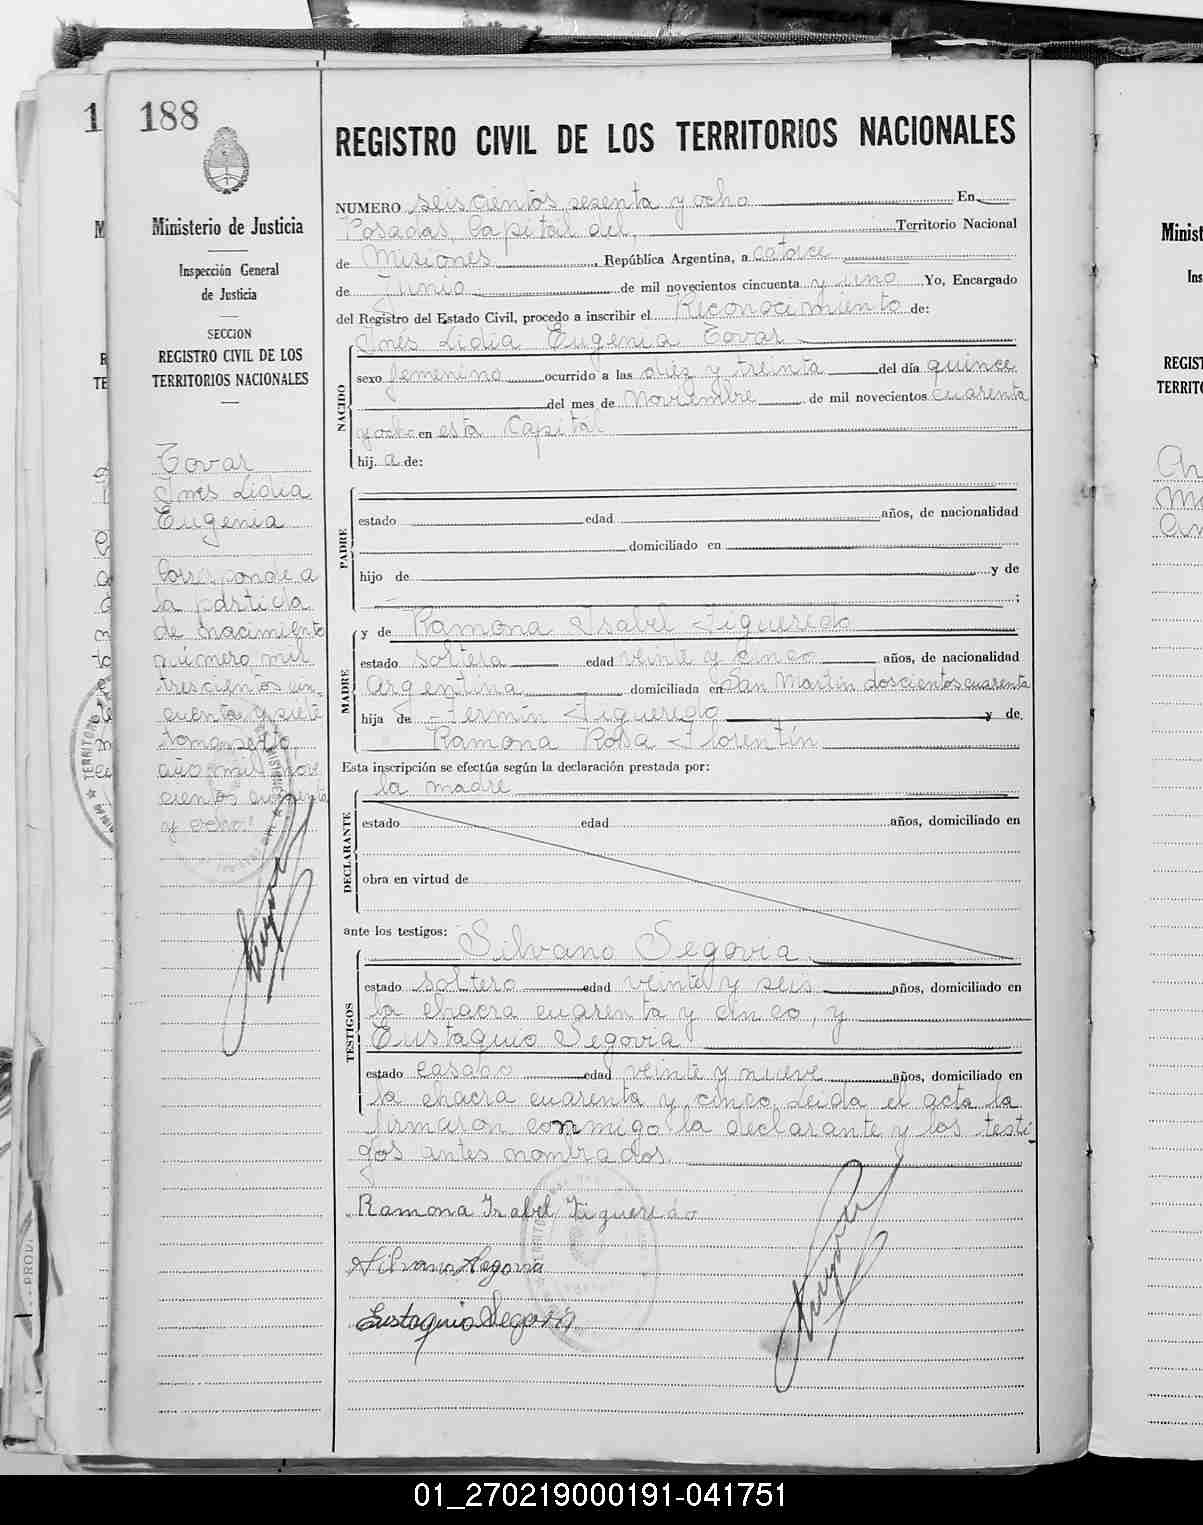 188
Ministerio de Justicia
Inspección General
de Justicia
SECCION
REGISTRO CIVIL DE LOS
TERRITORIOS NACIONALES
Tovar
Ines Lidia
Eugenia
Corresponde a
la partida
de nacimiento
número mil
trescientos cin-
cuenta y siete
tomo sexto
año mil nove
cientos cuarenta
y ocho.
REGISTRO CIVIL DE LOS TERRITORIOS NACIONALES
NUMERO seiscientos sesenta y ocho En
Posadas, Capital del, Territorio Nacional
de Misiones, República Argentina, a catorce
de Junio de mil novecientos cincuenta y uno Yo, Encargado
del Registro del Estado Civil, procedo a inscribir el Reconocimiento de:
Ines Lidia Eugenia Tovar
NACIDO
sexo femenino ocurrido a las diez y treinta del día quince
del mes de Noviembre de mil novecientos cuarenta
y ocho en esta Capital
hij. a de:
PADRE
estado edad años, de nacionalidad
domiciliado en
hijo de y de
;
MADRE
y de Ramona Isabel Figueredo
estado soltera edad veinte y cinco años, de nacionalidad
Argentina domiciliada en San Martin doscientos cuarenta
hija de Fermín Figueredo y de
Ramona Rosa Florentín
Esta inscripción se efectúa según la declaración prestada por:
la madre
DECLARANTE
estado edad años, domiciliado en
obra en virtud de
ante los testigos:
Silvano Segovia
TESTIGOS
estado soltero edad veinte y seis años, domiciliado en
la chacra cuarenta y cinco, y
Eustaquio Segovia
estado casado edad veinte y nueve años, domiciliado en
la chacra cuarenta y cinco. Leida el acta la
firmaron conmigo la declarante y los testi-
gos antes nombrados.
Ramona Isabel Figueredo
Silvano Segovia
Eustaquio Segovia
Minist
Ins
REGIST
TERRITO
01_270219000191-041751